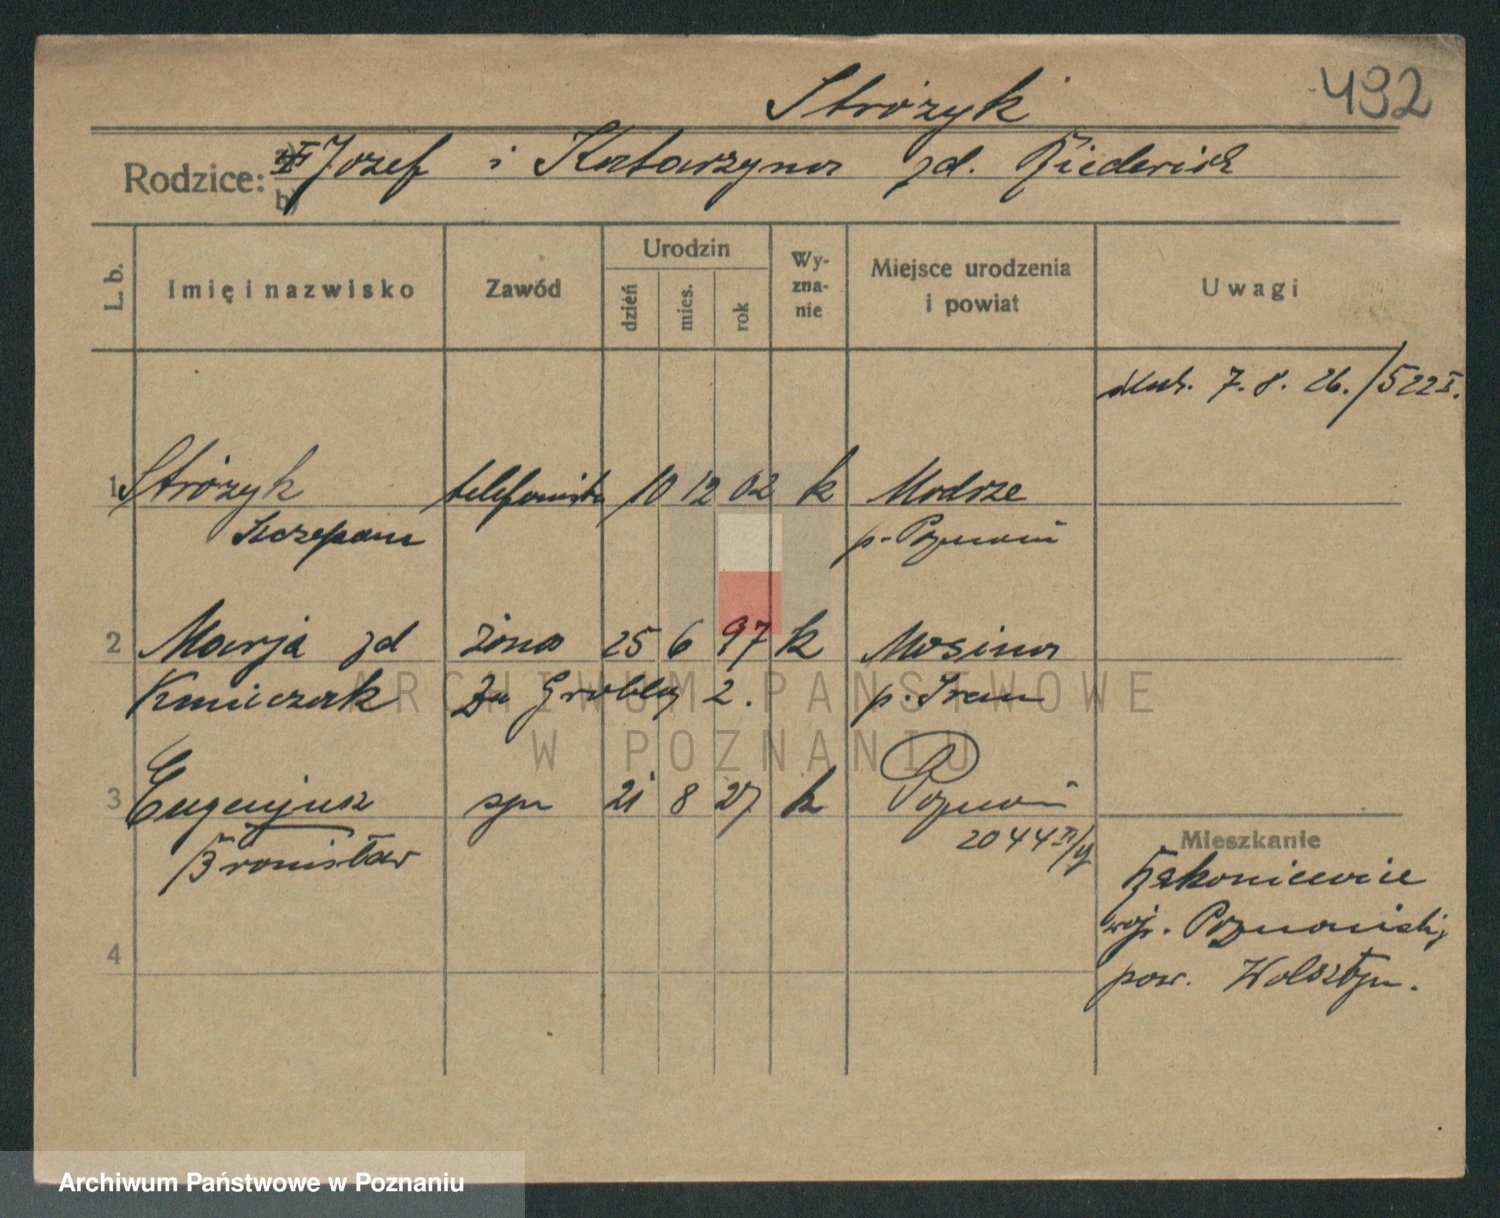 492
Stróżyk
Rodzice: Józef i Katarzyna zd.
b)
L. b. Imię i nazwisko Zawód Urodzin dzień mies. rok Wy-zna-nie Miejsce urodzenia i powiat Uwagi
7. 8. 26. / 522 I.
1 Stróżyk telefonista 10 12 02 k Modrze
Szczepan p. Poznań
2 Marja zd żona 25 6 97 k Mosina
Konieczak Za Groblą 2. p. Śrem
ARCHIWUM PAŃSTWOWE
W POZNANIU
3 Eugenjusz syn 21 8 27 k Poznań
Bronisław 2044
Mieszkanie
Rakoniewice
woj. Poznański
4
pow. Wolsztyn.
Archiwum Państwowe w Poznaniu